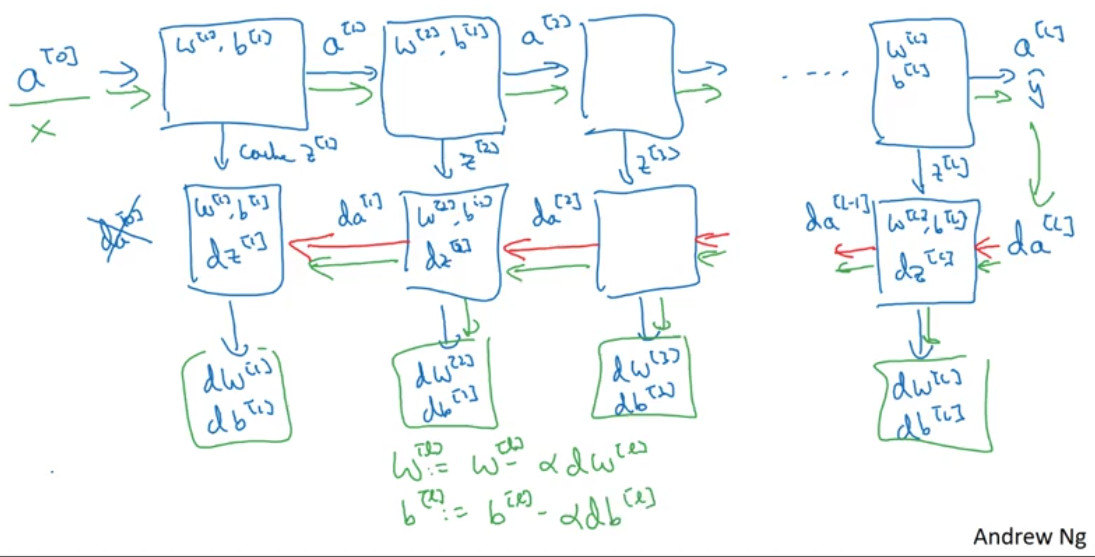 a^[0]
x
w^[1], b^[1]
a^[1]
w^[2], b^[2]
a^[2]
....
w^[L]
b^[L]
a^[L]
ŷ
cache z^[1]
z^[2]
z^[3]
z^[L]
da^[0]
w^[1], b^[1]
dz^[1]
da^[1]
w^[2], b^[2]
dz^[2]
da^[2]
da^[L-1]
w^[L], b^[L]
dz^[L]
da^[L]
dw^[1]
db^[1]
dw^[2]
db^[2]
dw^[3]
db^[3]
dw^[L]
db^[L]
w^[l] := w^[l] - αdw^[l]
b^[l] := b^[l] - αdb^[l]
Andrew Ng